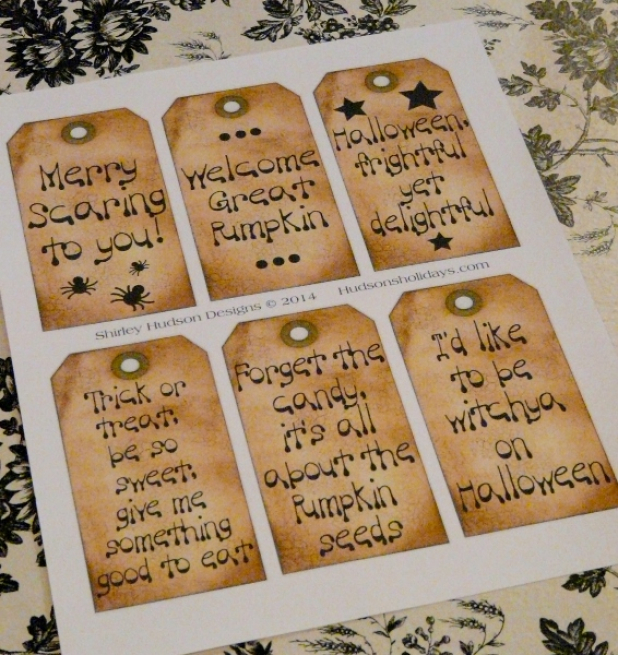 Merry
Scaring
to you!
Welcome
Great
Pumpkin
Halloween,
frightful
yet
delightful
Shirley Hudson Designs © 2014 Hudsonsholidays.com
Trick or
treat,
be so
sweet,
give me
something
good to eat
Forget the
candy,
it's all
about the
Pumpkin
seeds
I'd like
to be
witchya
on
Halloween